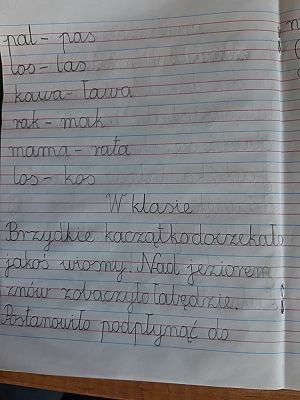 pal - pas
los - las
kawa - ława
rak - mak
mama - rata
los - kos
W klasie
Brzydkie kaczątko doczekało
jakoś wiosny. Nad jeziorem
znów zobaczyło łabędzie.
Postanowiło podpłynąć do